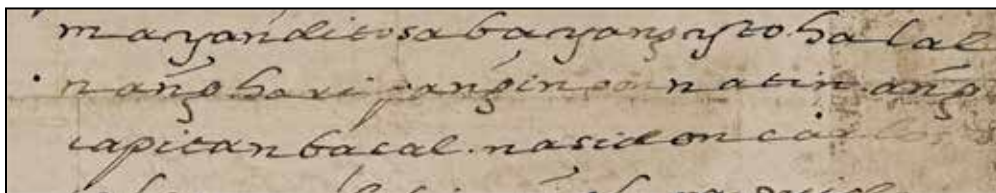 mayan dito sa bayang̃ yto. halal
nang̃ hari pang̃inoon natin. ang̃
capitan bacal. na si don carlos